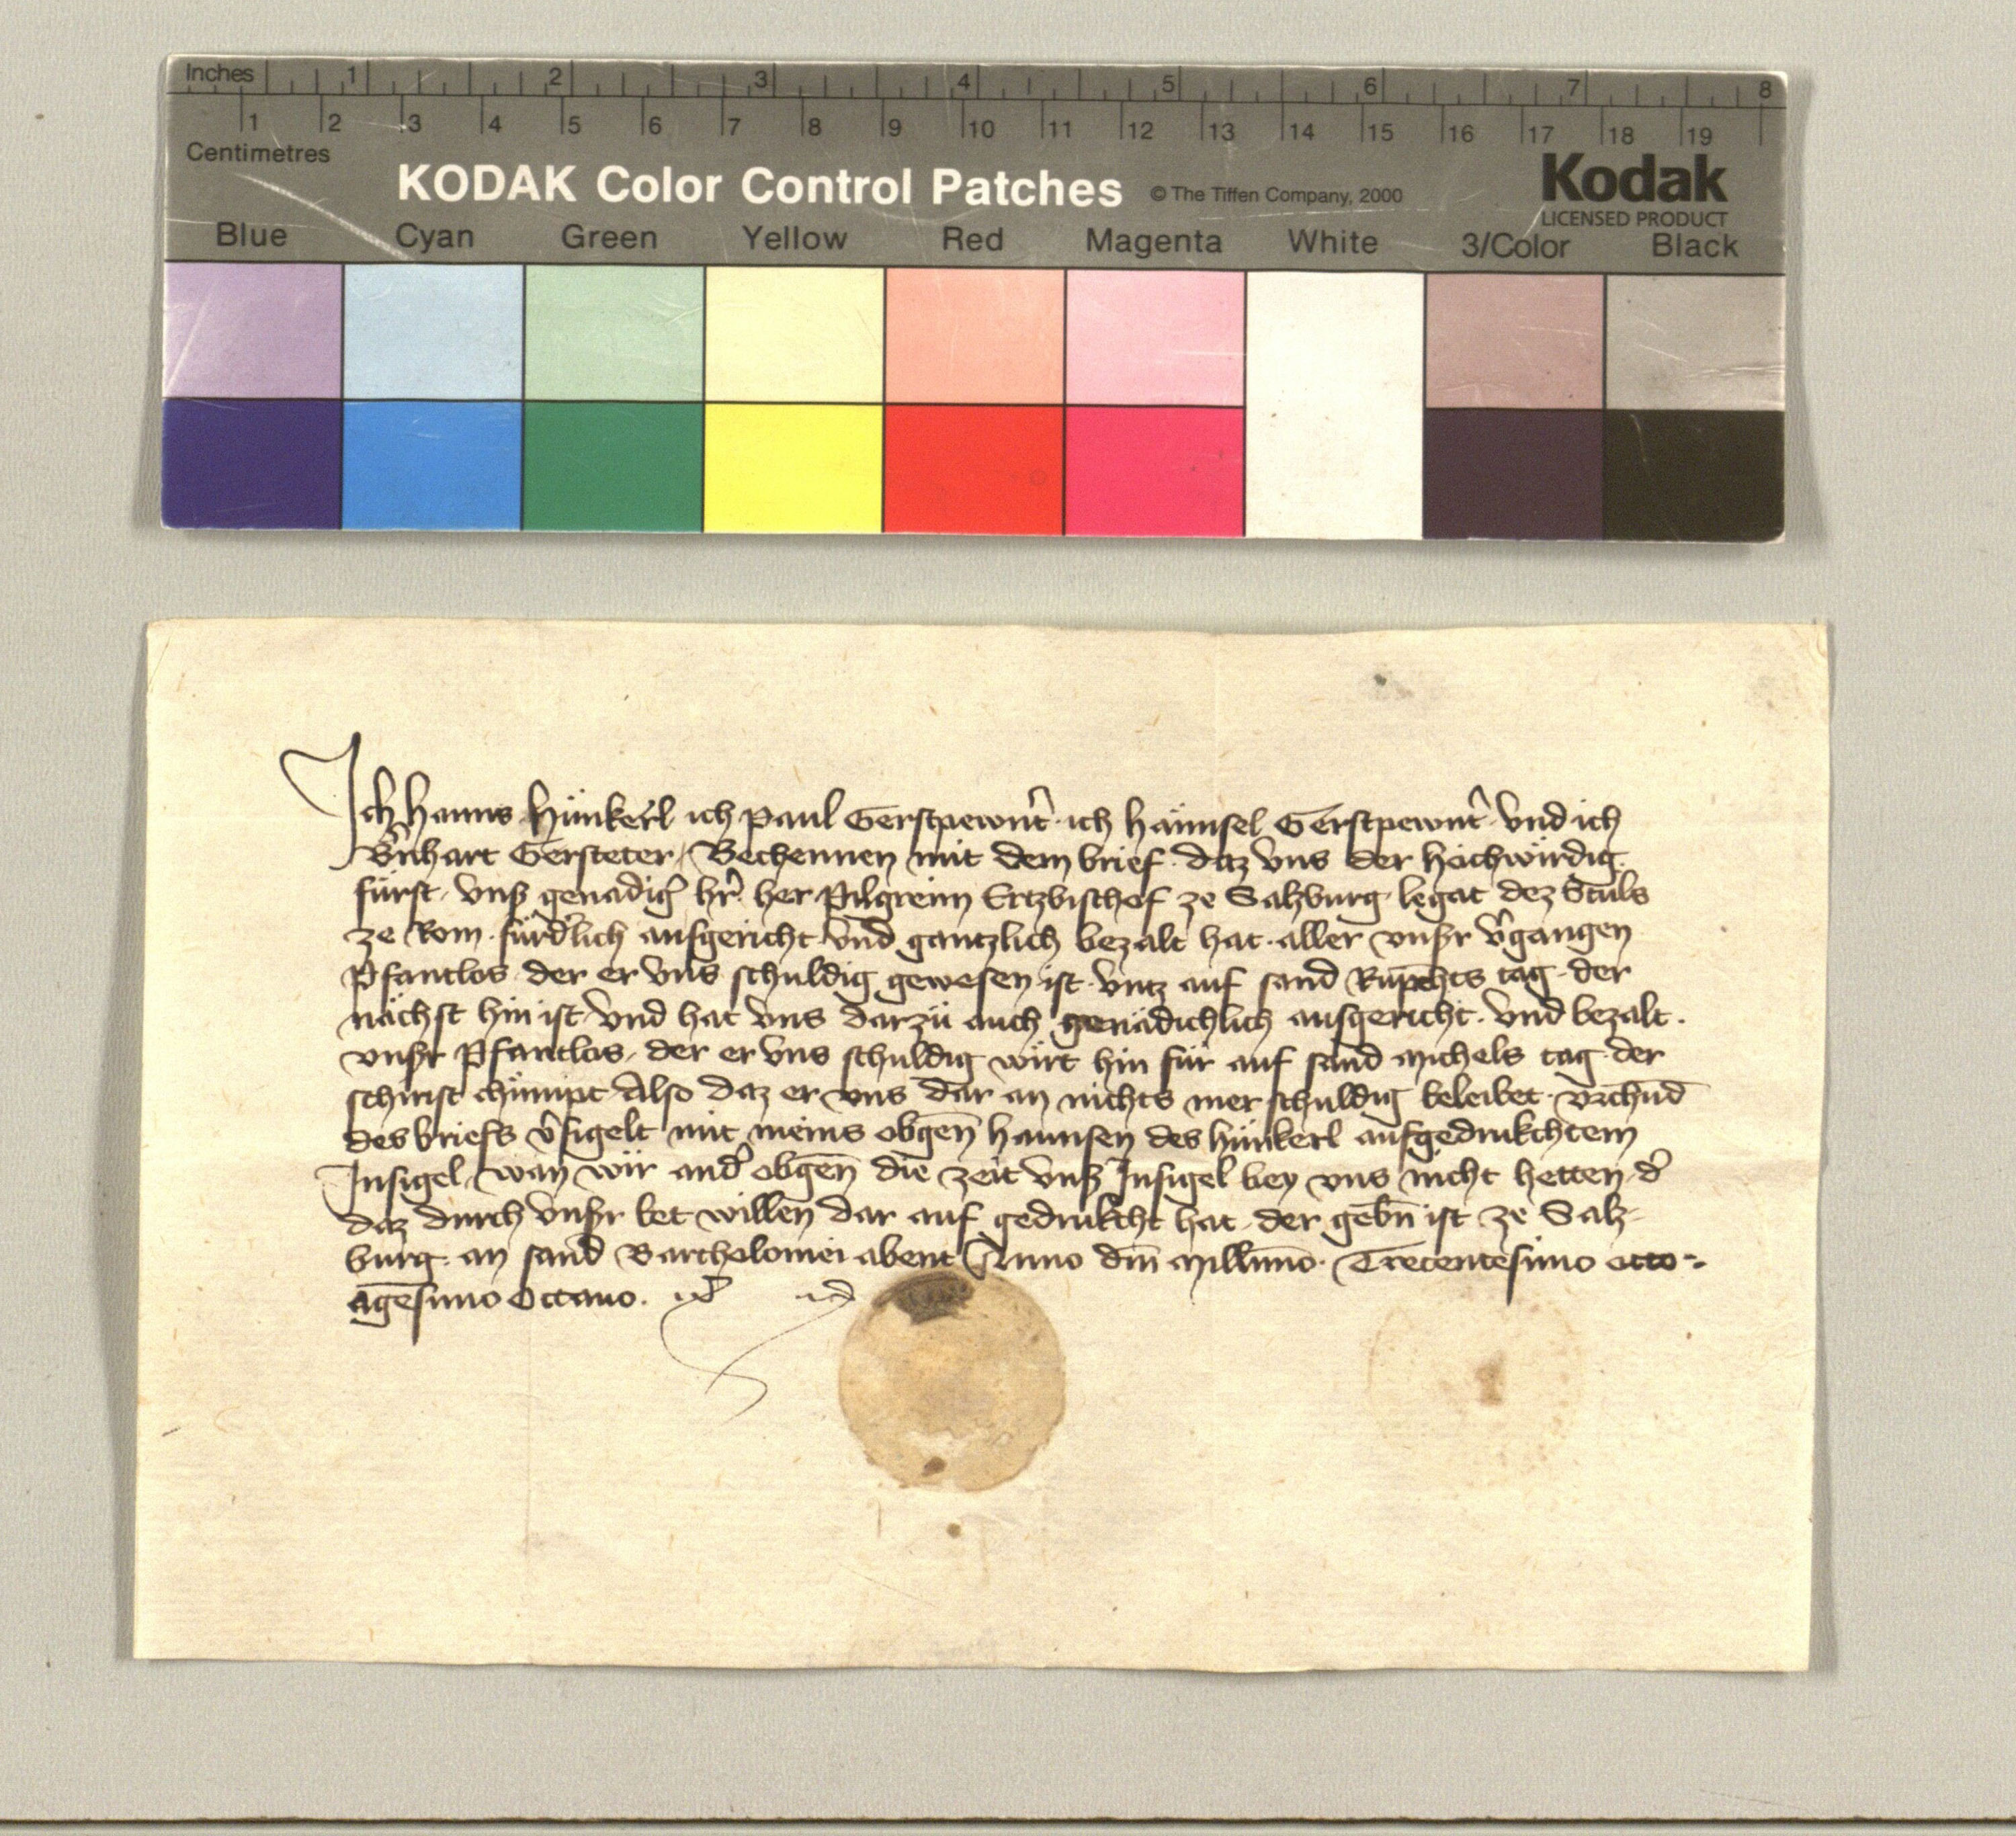 Inches 1 2 3 4 5 6 7 8
1 2 3 4 5 6 7 8 9 10 11 12 13 14 15 16 17 18 19
Centimetres
KODAK Color Control Patches © The Tiffen Company, 2000 Kodak
LICENSED PRODUCT
Blue Cyan Green Yellow Red Magenta White 3/Color Black
Ich Hanns Hünkerl ich Paul Gerstpewnt̉ ich Hännsel Gerstpewnt̉ vnd ich
B̉nhart Gersteter Bechennen mit dem brief daz vns der hochwirdig
fürst vnß genädig̉ hr̉ her Pilgreim Ertzbischof ze Salzburg legat dez Stuls
ze Rom fürd̉lich ausgericht vnd gantzlich bezalt hat aller vnßr v̉gangen
Pfantlos der er vns schuldig gewesen ist vntz auf sand Rup̄chts tag der
nächst hin ist vnd hat vns darzü auch genädichlich ausgericht vnd bezalt
vnßr Pfantlos der er vns schuldig wirt hin für auf sand Michels tag der
schirist chümpt Also daz er vns dar an nichts mer schuldig beleibet vrchūd
des briefs v̉sigelt mit meins obgen̄ Hannsen des Hünkerl aufgedrukchtem
Insigel wan wir and̉ obgen̄ die zeit vnß Insigel bey vns nicht hetten d̉
daz durch vnßr bet willen dar auf gedrukcht hat der gebn̄ ist ze Salz-
burg an sand Bartholomei abent Anno dm̄ Millīmo Trecentesimo octo-
agēsimo Octauo.